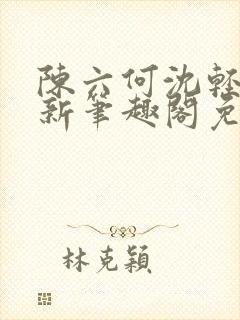 陳六何沈輕
新筆趣閣免
林克穎